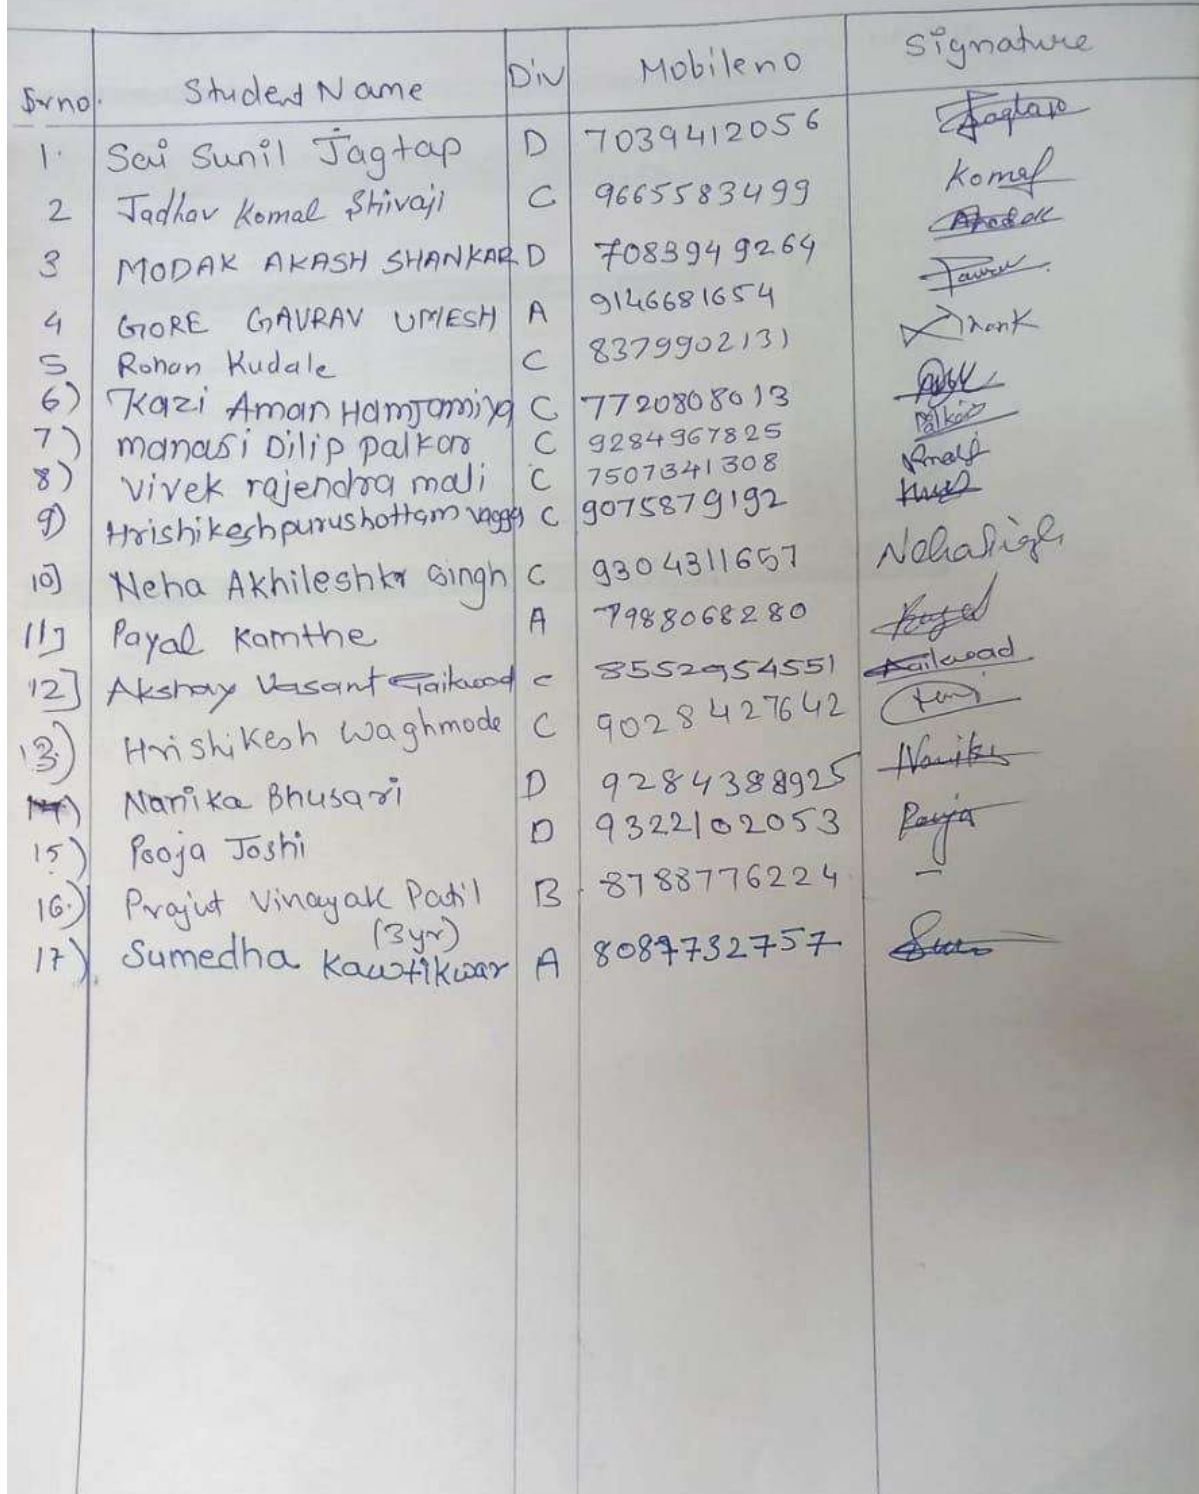 Srno. Student Name Div Mobileno Signature
1. Sai Sunil Jagtap D 7039412056 Jagtap
2 Jadhav Komal Shivaji C 9665583499 Komal
3 MODAK AKASH SHANKAR D 7083949264
4 GORE GAURAV UMESH A 9146681654
5 Rohan Kudale C 8379902131
6) Kazi Aman Hamjamiya C 7720808013
7) manasi Dilip palkar C 9284967825 Palkar
8) vivek rajendra mali C 7507341308 Rmali
9) Hrishikesh purushottam C 9075879192
10] Neha Akhileshkr Singh C 9304311657 NehaSingh
11] Payal Kamthe A 7988068280
12] Akshay Vasant Gaikwad C 8552954551 Gaikwad
13.) Hrishikesh Waghmode C 9028427642
14) Narika Bhusari D 9284388925
15) Pooja Joshi D 9322102053 Pooja
16.) Prajut Vinayak Patil B 8788776224 —
(3yr)
17) Sumedha Kawtikwar A 8087732757